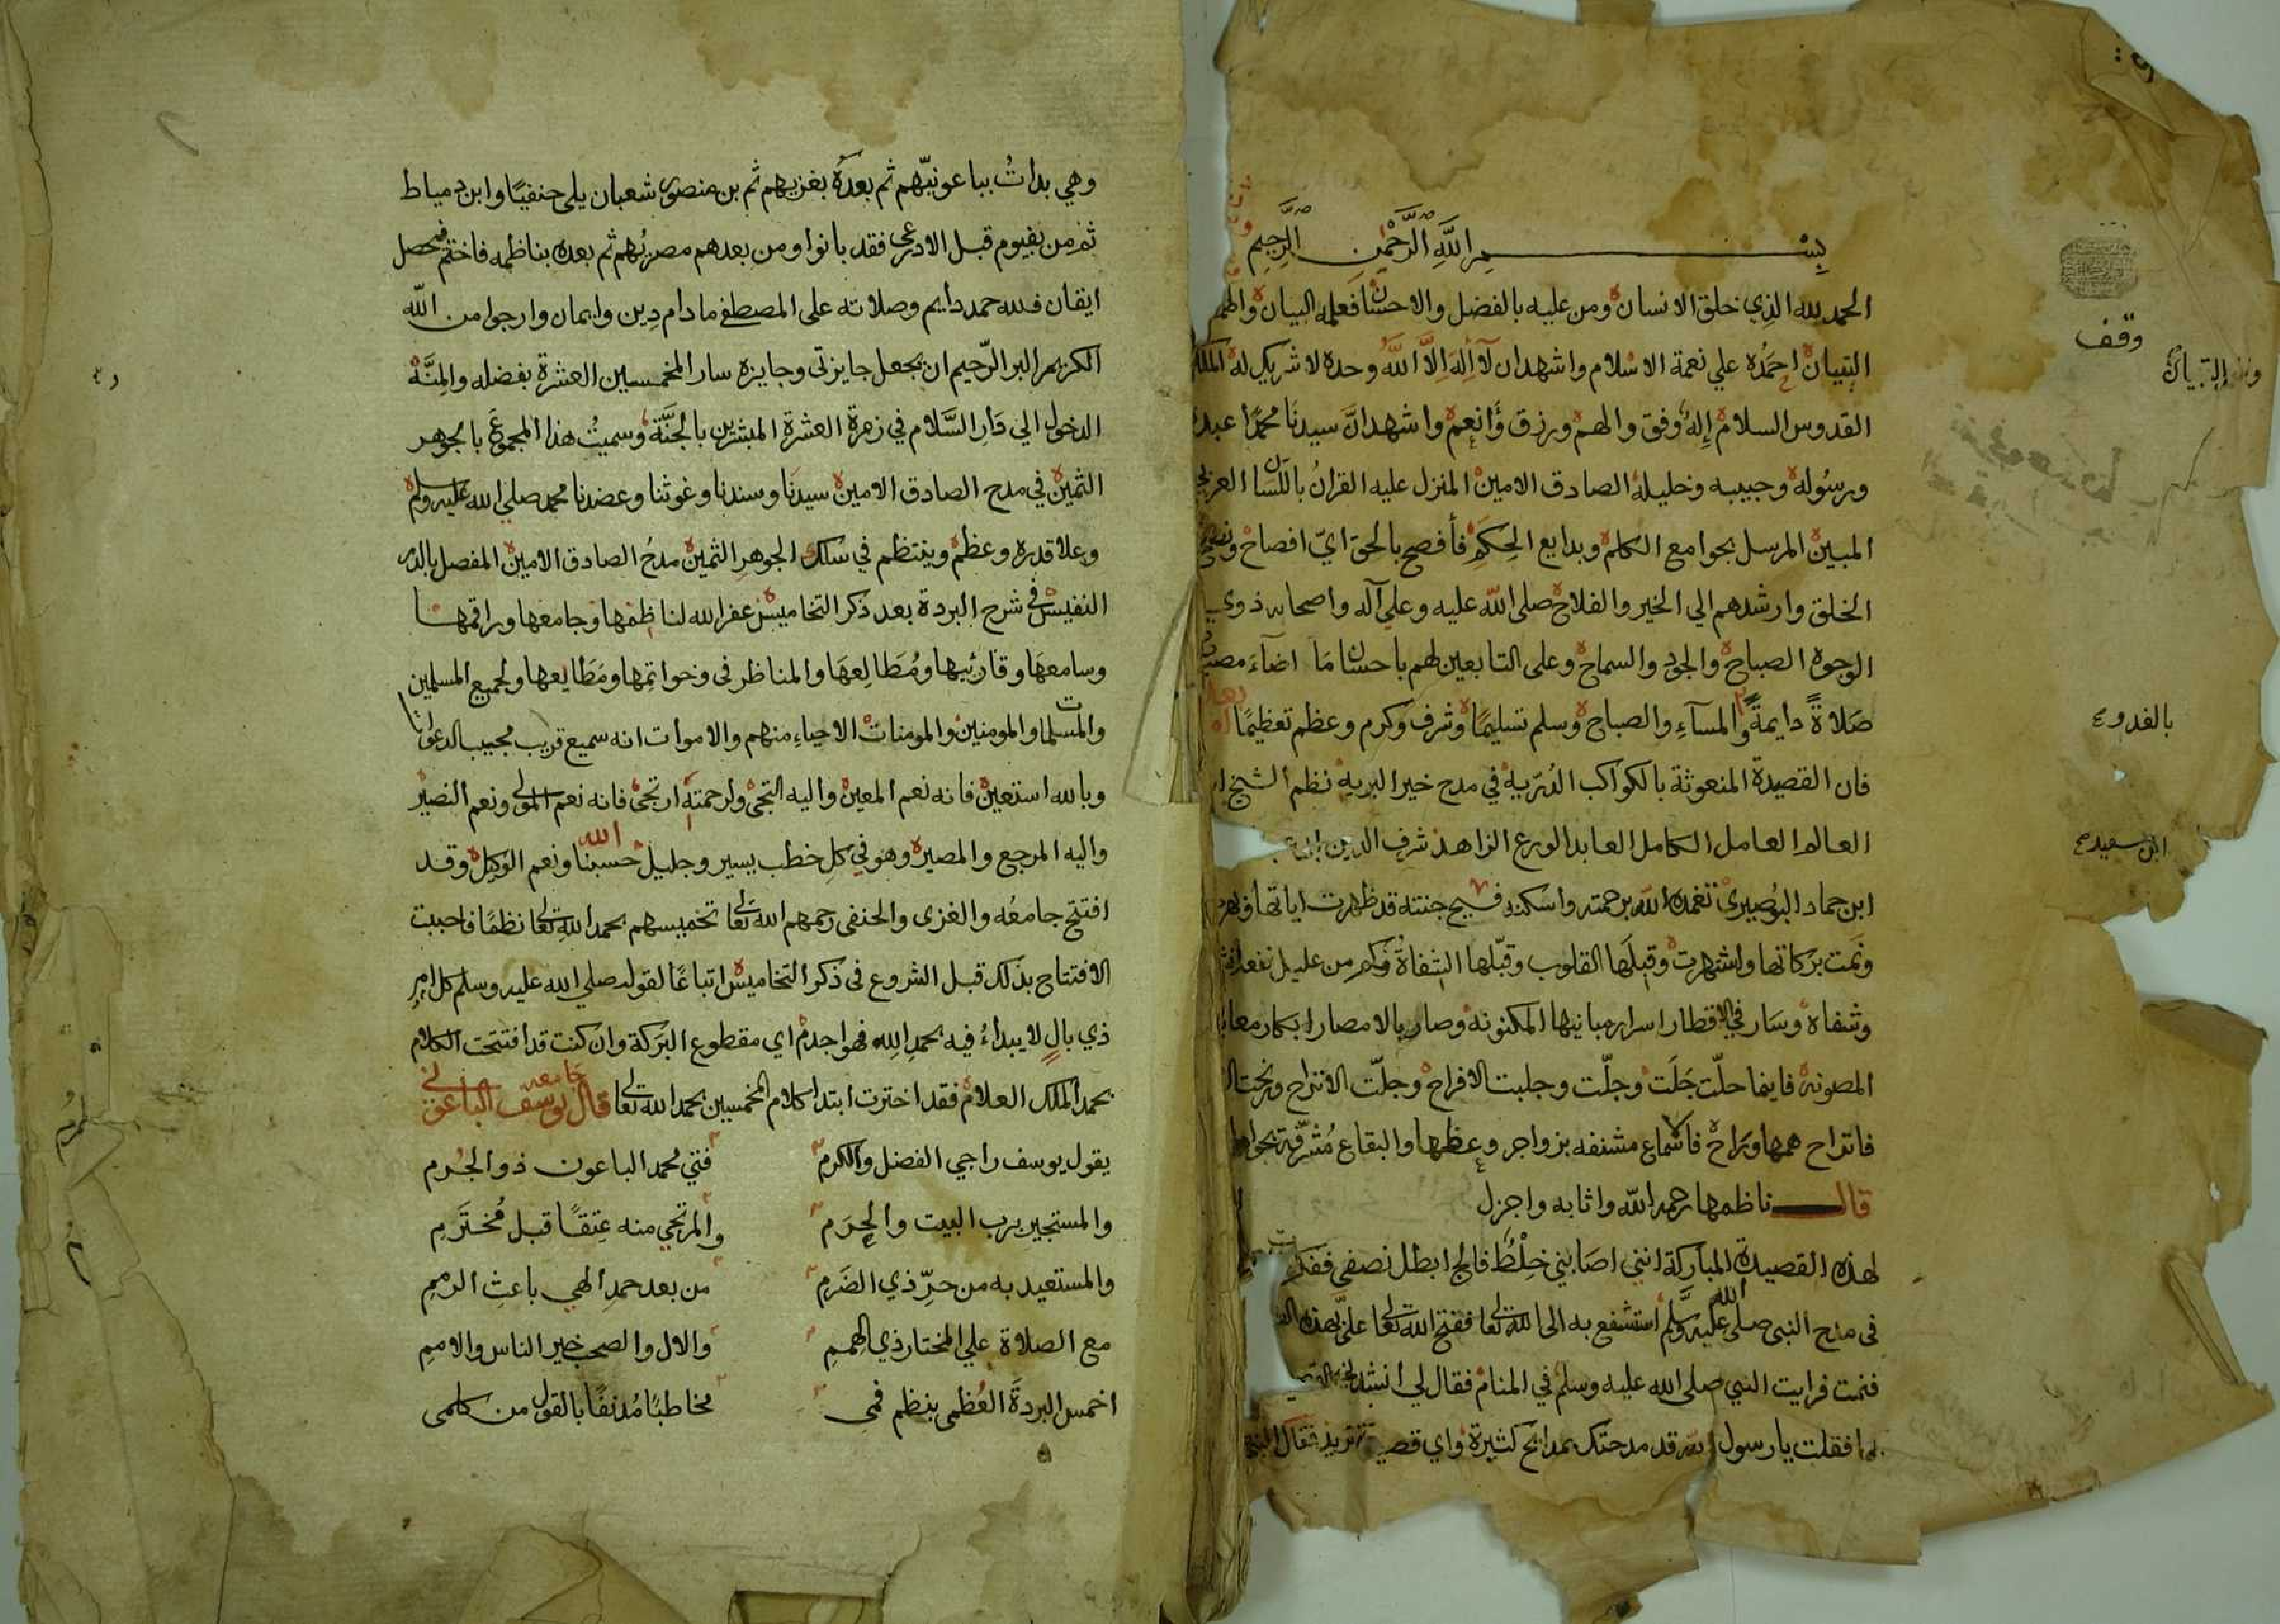 بسم الله الرحمن الرحيم
الحمد لله الذي خلق الانسان ومن عليه بالفضل والاحسان فعلمه البيان والهم
التبيان احمده علي نعمة الاسلام واشهد ان لا إله الا الله وحده لا شريك له الملك
القدوس السلام إله وفق والهم ورزق وأنعم واشهد انَّ سيدنا محمدًا عبده
ورسوله وحبيبه وخليله الصادق الامين المنزل عليه القران باللسان العربي
المبين المرسل بجوامع الكلم وبدايع الحِكَم فأفصح بالحق ايّ افصاح ونصح
الخلق وارشدهم الي الخير والفلاح صلى الله عليه وعلي آله واصحابه ذوي
الوجوه الصباح والجود والسماح وعلى التابعين لهم باحسان مَا اضاءَ مصباح
صَلاةً دايمةً المسآءِ والصباح وسلم تسليمًا وشرف وكرم وعظم تعظيمًا
فان القصيدة المنعوتة بالكواكب الدُرّية في مدح خير البرية نظم الشيخ
العالم العامل الكامل العابد الورع الزاهد شرف الدين
ابن حماد البُوصيري تغمده الله برحمته واسكنه فسيح جنته قد ظهرت اياتها
ونَمت بركاتها واشتهرت وقبلَها القلوب وقبّلها الشفاة فكم من عليل
وشفاه وسَار في الاقطار اسرار مبانيها المكنونه وصار بالامصار
المصونة فاينما حلّت جَلَت وجلّت وجلبت الافراح وجلّت الاتراح
فاتراح همها وبَراح فالاسماع مشنفه بزواجر وعظها والبقاع مُشرّفة
قال ناظمها رحمه الله واثابه واجزل
لهذه القصيدة المباركة انني اصَابني خِلْطُ فالج ابطل نصفي ففكرت
في مدح النبي صلى الله عليه وسلم استشفع به الى الله تعالى ففتح الله تعالى عليّ بهذه
فنمت فرايت النبي صلى الله عليه وسلم في المنام فقال لي انشد
فقلت يا رسول الله قد مدحتك بمدايح كثيرة واي تريد فقال
وقف
التبيان
بالغدو
ابن سعيد
وهي بداتُ بباعونيّهم ثم بعدَهُ بغزيهم ثم بن منصور شعبان يلى حنفيًا وابن دمياط
ثم من بفيوم قبل الادرعى فقد بانوا ومن بعدهم مصريُهم ثم بعده بناظمه فاختم فحصل
ايقان فلله حمد دايم وصلاته على المصطفي ما دام دِين وايمان وارجوا من الله
الكريم البر الرّحيم ان يجعل جايزتى وجايزه سار المخمسين العشرة بفضله والمِنَّة
الدخول الي دَار السَّلام في زمرة العشرة المبشرين بالجنَّة وسميتُ هذا المجموعَ بالجوهر
الثمين في مدح الصادق الامين سيدنَا وسندنا وغوثنا وعضدنا محمد صلي الله عليه وسلم
وعلا قدره وعظم وينتظم في سلك الجوهرِ الثمين مدحُ الصادق الامين المفصل بالدر
النفيس في شرح البردة بعد ذكر التخاميس غفر الله لناظمها وجامعها وراقمها
وسامعهَا وقارئيها ومُطَالِعهَا والمناظر فى وخواتِمها ومَطَالِعها ولجميع المسلمين
والمسلمات والمومنين والمومنات الاحياءِ منهم والاموات انه سميع قريب مجيب الدعوات
وبالله استعين فانه نعم المعين واليه التجى ولرحمته ارتجى فانه نعم المولى ونعم النصير
واليه المرجع والمصير وهو في كل خطب يسير وجليل حسبنا الله ونعم الوكيل وقد
افتتح جامعُه والغزى والحنفى رحمهم الله تعالى تخميسهم بحمد اللهِ تعالى نظمًا فاحببت
الافتتاح بذلك قبل الشروع فى ذكر التخاميس اتباعًا لقوله صلي الله عليه وسلم كل امرٍ
ذي بالٍ لا يبداءُ فيه بحمدِ اللهِ فهو اجذم اي مقطوع البَركة وان كنت قد افتتحت الكلام
بحمد الملك العلام فقد اخترت ابتدا كلام المخمسين بحمد الله تعالى قال جامعه يوسف الباعوني
يقول يوسف راجي الفضل والكرم فتي محمد الباعون ذو الجُرم
والمستجير برب البيت والحِرَم والمرتجي منه عِتقًا قبل مُختَرَمِ
والمستعيد به من حرِّ ذي الضَرمِ من بعد حمدِ الهي باعثِ الرممِ
مع الصلاة علي المختار ذي الهممِ والال والصحب خير الناس والاممِ
اخمس البردةَ العُظمى بنظم فمى مخاطبًا مُدنفًا بالقول من كلمى